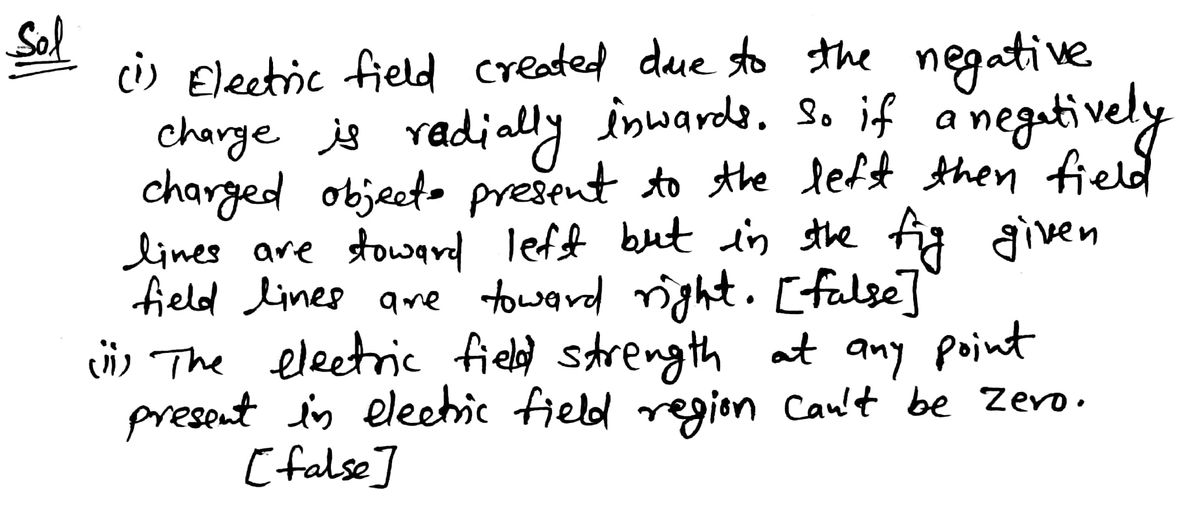 Sol
(i) Electric field created due to the negative
charge is radially inwards. So if a negatively
charged object present to the left then field
lines are toward left but in the fig given
field lines are toward right. [false]
(ii) The electric field strength at any point
present in electric field region can't be zero.
[false]